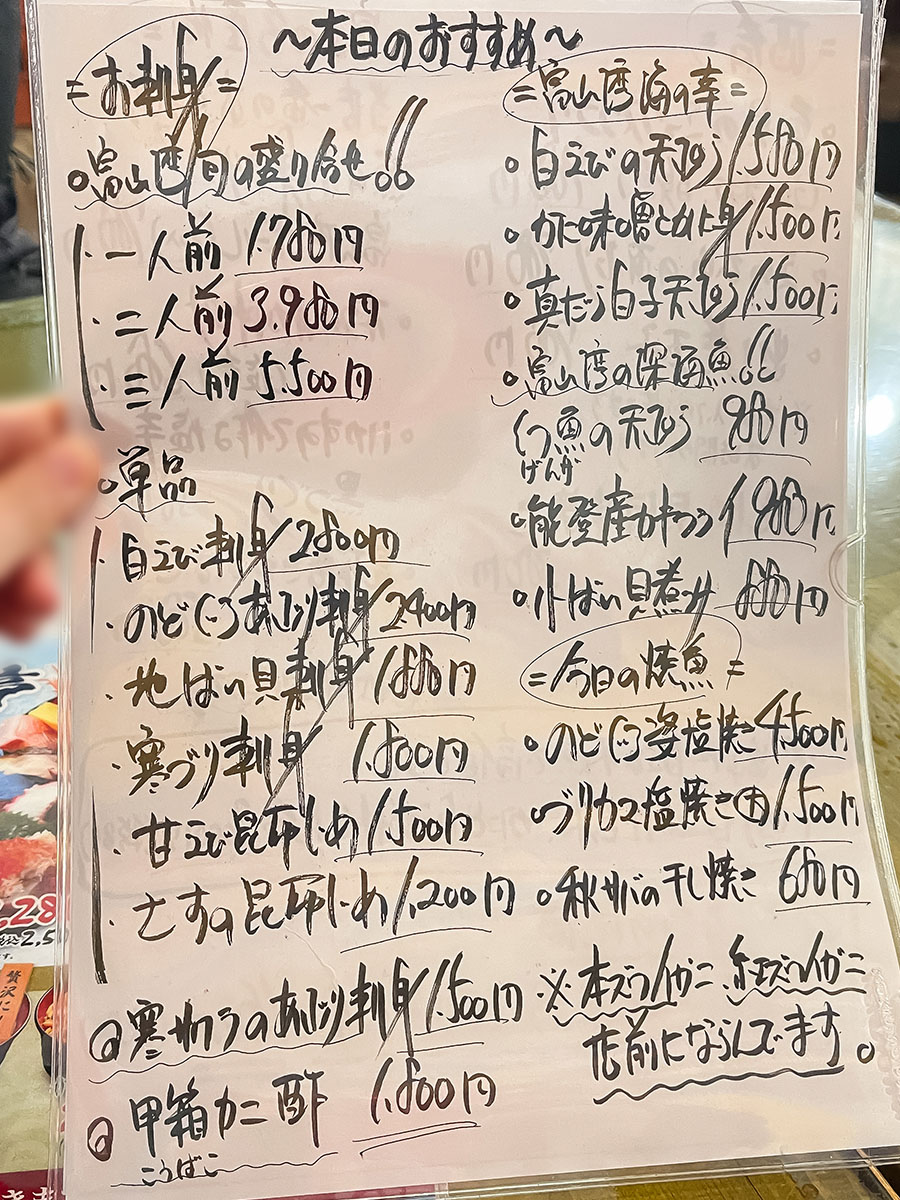 〜本日のおすすめ〜
=お刺身=
。富山湾旬の盛り合せ!!
・一人前 1.780円
・二人前 3.980円
・三人前 5.500円
。単品
・白えび刺身 2.800円
・のどぐろあぶり刺身 2.400円
・地ばい貝刺身 1880円
・寒ブリ刺身 1.800円
・甘えび昆布しめ 1,500円
・さすの昆布しめ 1,200円
寒サワラのあぶり刺身 1.500円
甲箱カニ酢 1.800円
こうばこ
=富山湾海の幸=
。白えびの天ぷら 1.580円
。カニ味噌とカニ身 1.500円
。真だら白子天ぷら 1.500円
。富山湾の深海魚!!
幻魚の天ぷら 980円
げんげ
。能登産カキフライ 980円
。小ばい貝煮み 880円
=今日の焼魚=
。のどぐろ姿塩焼き 4.500円
。ブリカマ塩焼き大 1,500円
。秋サバの干し焼き 680円
※本ズワイガニ 紅ズワイガニ
店前にならんでます。
贅沢に